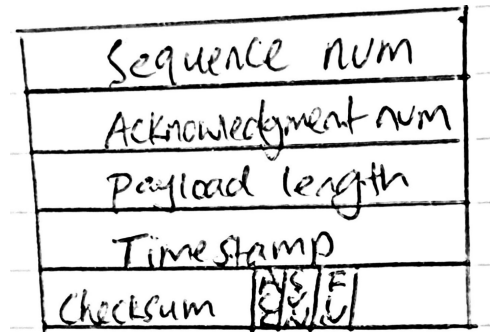 Sequence num
Acknowledgment num
Payload length
Timestamp
Checksum ACK SYN FIN